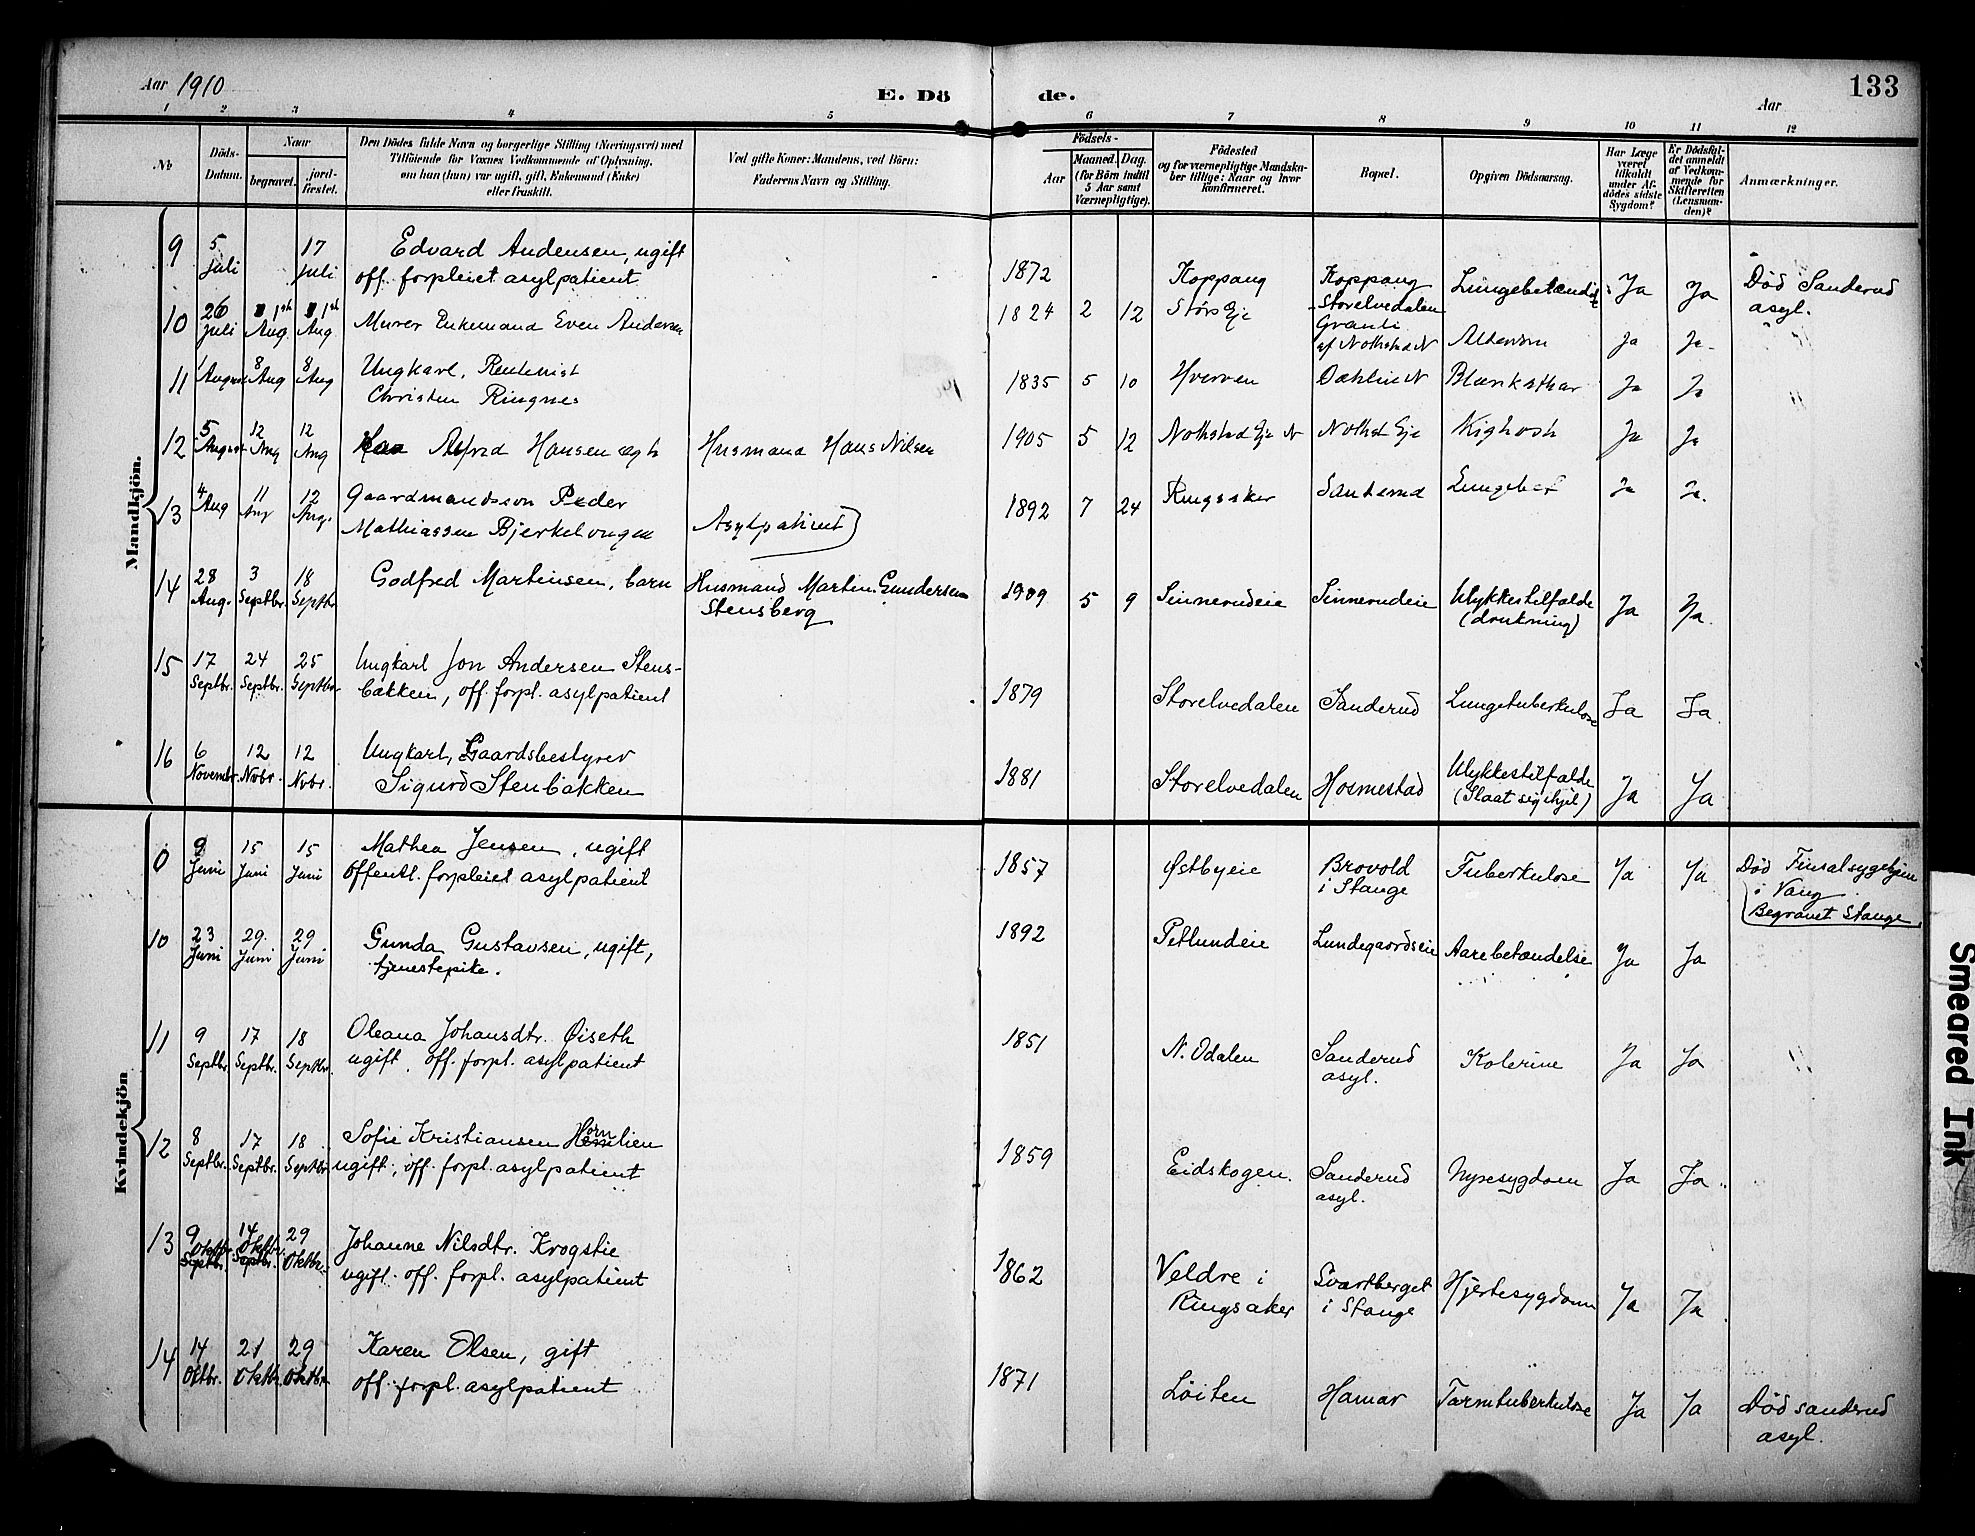 Aar 1910
E. Dö de.
Aar
133
1 2 3 4 5 6 7 8 9 10 11 12
No
Döds-Datum.
Naar
begravet.
jord-fæstet.
Den Dödes fulde Navn og borgerlige Stilling (Næringsvei) med
Tilföiende for Voxnes Vedkommende af Oplysning,
om han (hun) var ugift, gift, Enkemand (Enke)
eller fraskilt.
Ved gifte Koner: Mandens, ved Börn:
Faderens Navn og Stilling.
Födsels-
Aar
Maaned. Dag.
(for Börn indtil
5 Aar samt
Værnepligtige).
Födested
og for værnepligtige Mandska-
ber tillige: Naar og hvor
konfirmeret.
Bopæl.
Opgiven Dödsaarsag.
Har Læge
været
tilkaldt
under Af-
dödes sidste
Sygdom?
Er Dödsfal-
det anmeldt
af Vedkom-
mende for
Skifteretten
(Lensman-
den)?
Anmærkninger.
Mandkjön.
9 5 Juli 17 Juli Edvard Andensen, ugift 1872 Koppang Koppang Lungebetændls Ja Ja Död Sanderud
off. forpleiet asylpatient Storelvedalen asyl.
10 26 Juli 1st Aug 1st Aug. Murer Enkemand Even Andersen 1824 2 12 Störs Eje Granli Alderdom Ja Ja "
af Nothstad N
11 1 August 8 Aug 8 Aug Ungkarl, Rentenist 1835 5 10 Hverven Dæhlin N Blærekathar Ja Ja
Christen Ringnes
12 5 August 12 Aug 12 Aug Alfred Hansen ægte Husmand Hans Nilsen 1905 5 12 Nothstad Eje N Nothst Eje Kighoste Ja Ja
13 4 Aug 11 Aug 12 Aug. Gaardmandsson Peder 1892 7 24 Ringsaker Sanderud Lungebet Ja Ja.
Mathiassen Bjerkelongen Asylpatient)
14 28 Aug. 3 Septbr. 18 Septbr Godfred Martinsen, barn Husmand Martin Gundersen 1909 5 9 Sinnerudeie Sinnerudeie Ulykkestilfælde Ja Ja.
Stensberg (drukning)
15 17 Septbr. 24 Septbr. 25 Septbr. Ungkarl Jon Andersen Stens- 1879 Storelvedalen Sanderud Lungetuberkulose Ja Ja.
bakken, off. forpl. asylpatient
16 6 Novembr. 12 Nvbr. 12 Nvbr. Ungkarl, Gaardsbestyrer 1881 Storelvedalen Hosmestad Ulykkestilfælde Ja Ja
Sigurd Stenbakken (Slaat sig ihjel)
Kvindekjön
0 9 Juni 15 Juni 15 Juni Mathea Jensen, ugift 1857 Østbyeie Brovold Tuberkulose Ja Ja Död Finsalsygehjem
offentl. forpleiet asylpatient i Stange i Vang
Begravet Stange
10 23 Juni 29. Juni 29 Juni Gunda Gustavsen, ugift, 1892 Petlundeie Lundegaardseie Aarebetændelse Ja Ja
tjenestepike.
11 9 Septbr 17 Septbr. 18 Septbr. Oleana Johansdtr. Øiseth 1851 N. Odalen Sanderud Kolerine Ja Ja "
ugift, off. forpl. asylpatient asyl.
12 8 Septbr. 17 Septbr. 18 Septbr Sofie Kristiansen Hornlien 1859 Eidskogen. Sanderud Nyresygdom Ja Ja
ugift, off. forpl. asylpatient asyl.
13 9 Oktbr. Septbr. 14 Oktbr. Septbr. 29 Oktbr. Johanne Nilsdtr. Krogstie 1862 Veldre i Svartberget Hjertesygdom Ja Ja
ugift. off. forpl. asylpatient Ringsaker i Stange
14 14 Oktbr. 21 Oktbr 29 Oktbr. Karen Olsen, gift 1871 Löiten Hamar Tarmtuberkulose Ja Ja Död sanderud
off. forpl. asylpatient asyl.
Smeared Ink